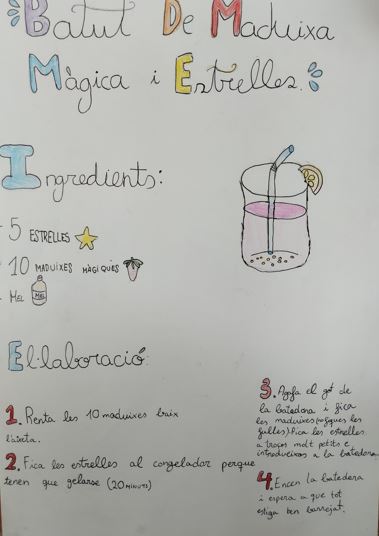 Batut De Maduixa
Màgica i Estrelles.
Ingredients:
- 5 ESTRELLES
- 10 MADUIXES MÀGIQUES
- MEL
MEL
El·laboració:
1. Renta les 10 maduixes baix
l'aixeta.
2. Fica les estrelles al congelador perque
tenen que gelarse (20 MINUTS)
3. Agafa el got de
la batedora i fica
les maduixes
fulles). Pica les estrelles
a troços molt petits e
introdueixos a la batedora.
4. Encen la batedora
i espera a que tot
estiga ben barrejat.